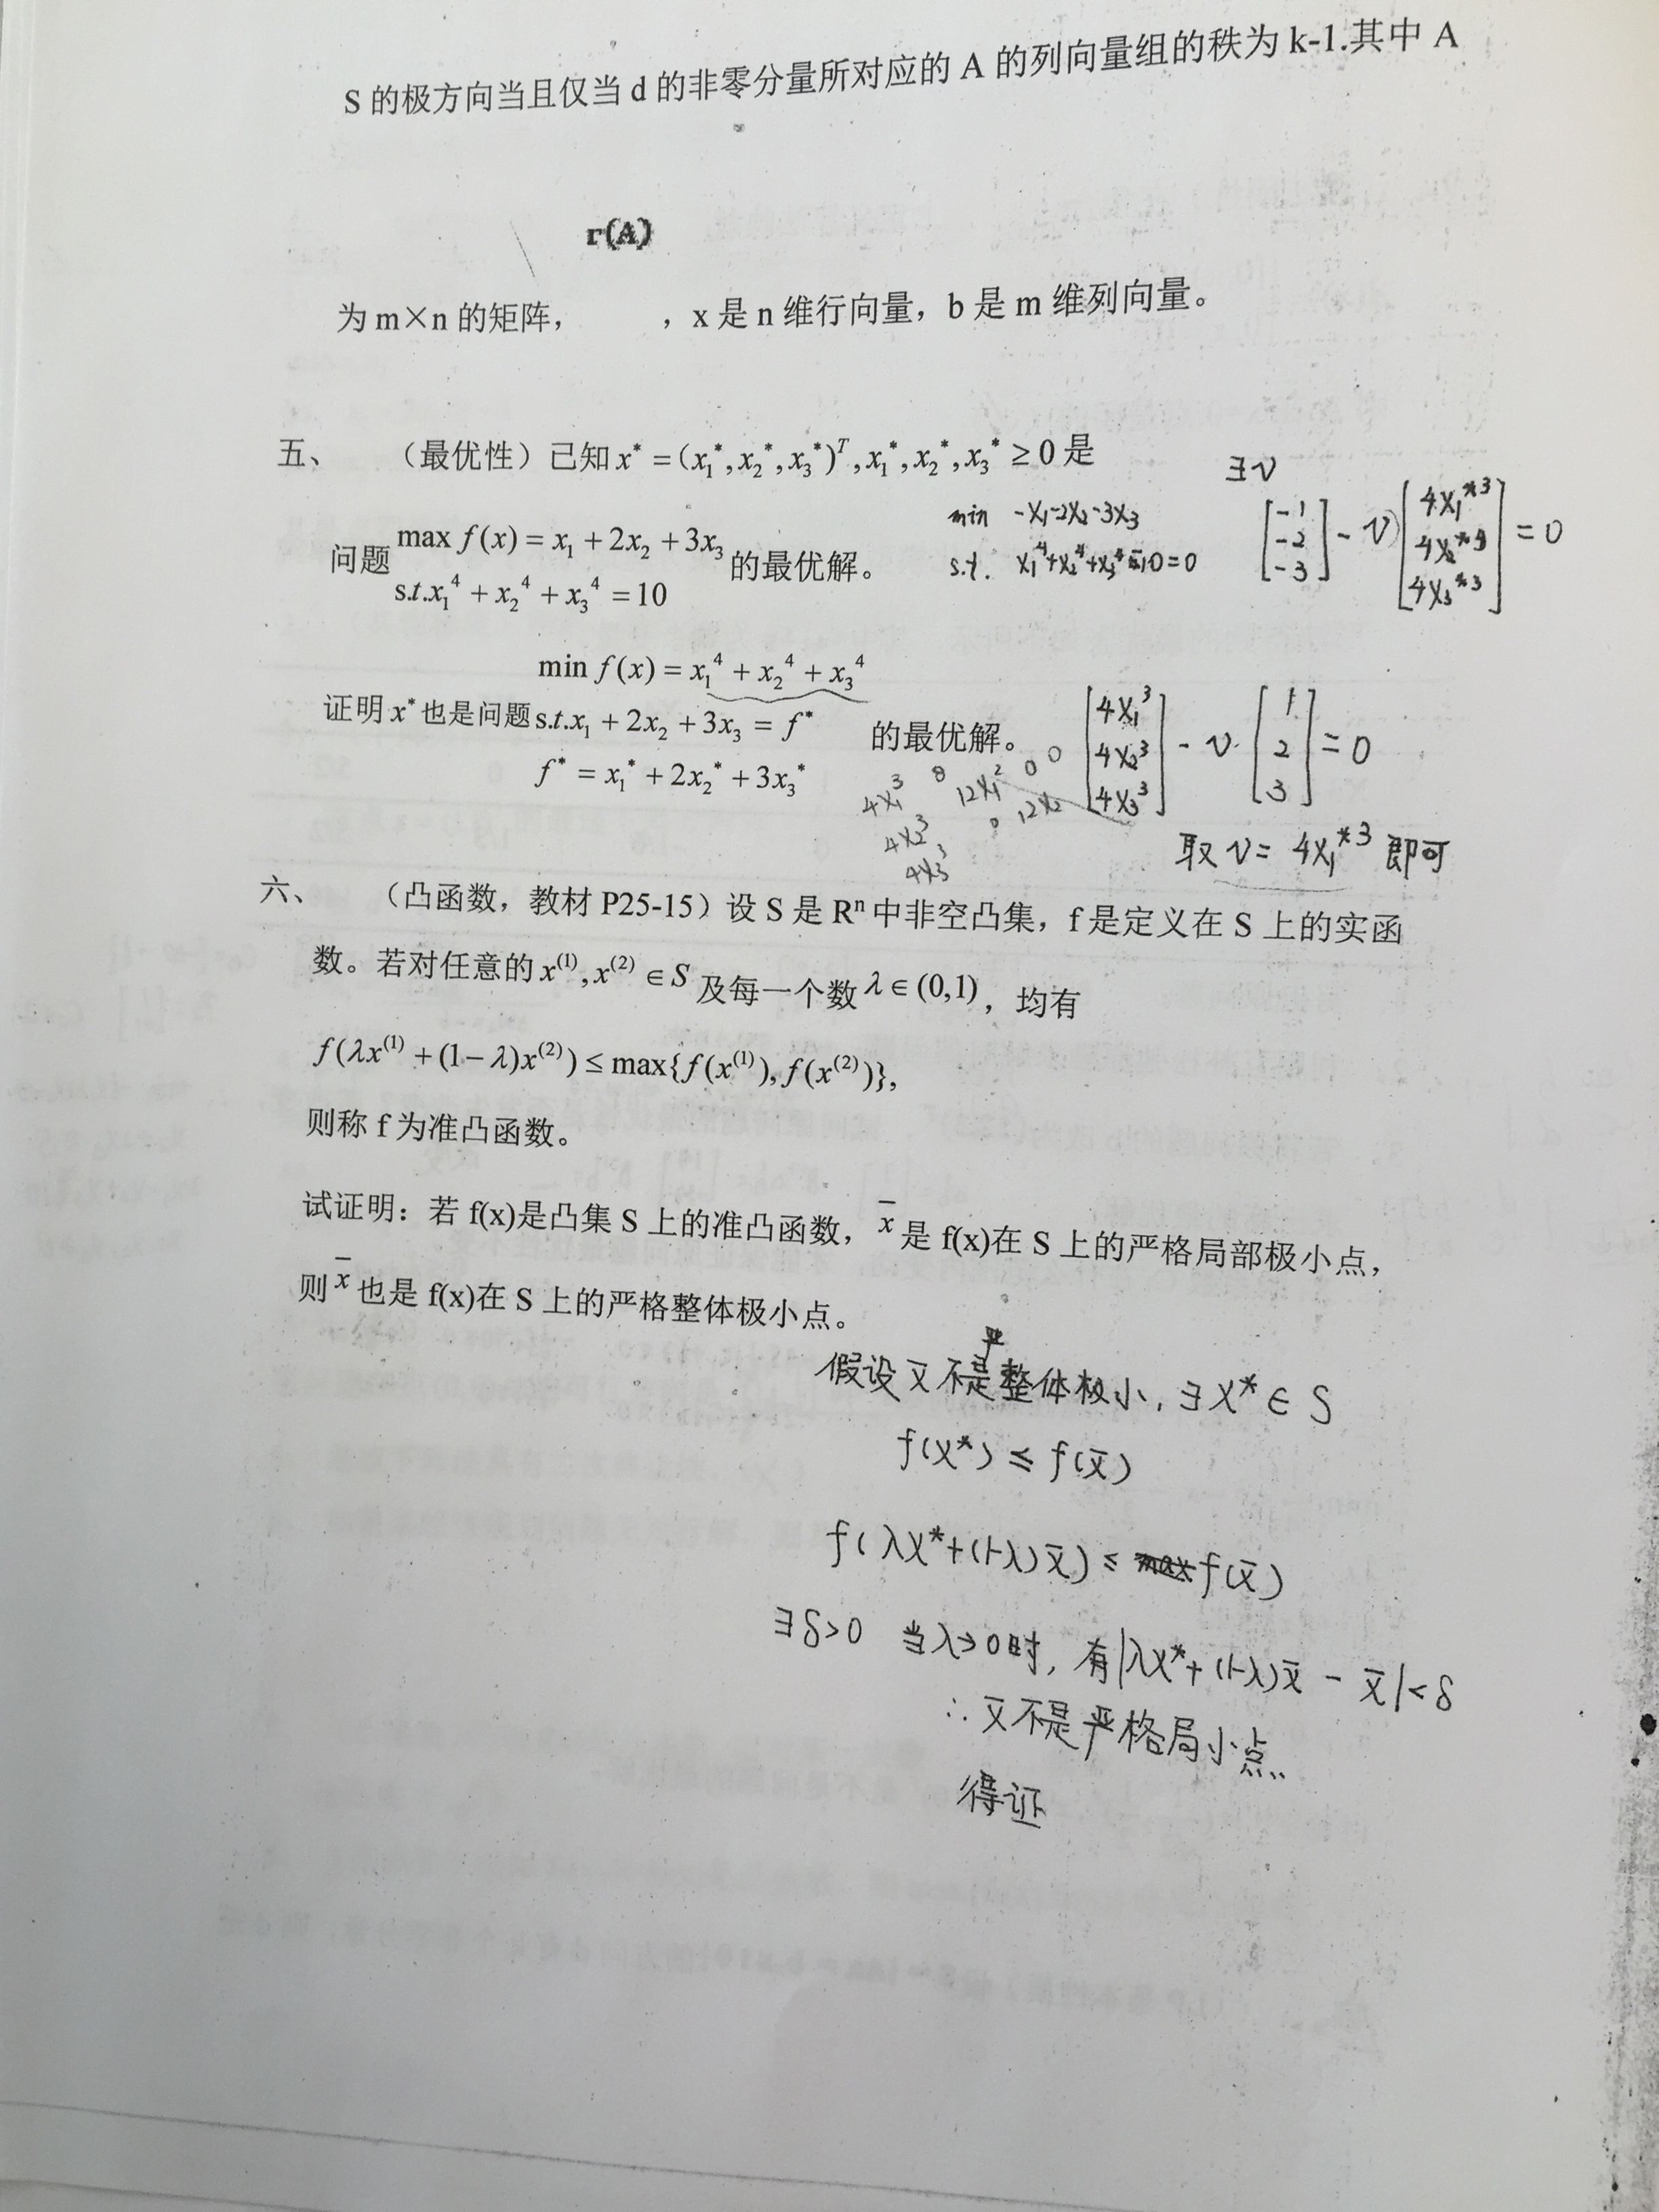 S 的极方向当且仅当 d 的非零分量所对应的 A 的列向量组的秩为 k-1.其中 A
r(A)
为 m×n 的矩阵， ，x 是 n 维行向量，b 是 m 维列向量。
五、 （最优性）已知 x* = (x₁*, x₂*, x₃*)ᵀ, x₁*, x₂*, x₃* ≥ 0 是
∃ν
问题 max f(x) = x₁ + 2x₂ + 3x₃
s.t. x₁⁴ + x₂⁴ + x₃⁴ = 10 的最优解。
min -x₁-2x₂-3x₃
s.t. x₁⁴+x₂⁴+x₃⁴-10=0
[-1 -2 -3] - ν [4x₁*³ 4x₂*³ 4x₃*³] = 0
min f(x) = x₁⁴ + x₂⁴ + x₃⁴
证明 x* 也是问题 s.t. x₁ + 2x₂ + 3x₃ = f* 的最优解。
f* = x₁* + 2x₂* + 3x₃*
[4x₁³ 4x₂³ 4x₃³] - ν· [1 2 3] = 0
4x₁³ 0 12x₁² 0 0
4x₂³ 0 12x₂
4x₃³
取 ν = 4x₁*³ 即可
六、 （凸函数，教材 P25-15）设 S 是 Rⁿ 中非空凸集，f 是定义在 S 上的实函
数。若对任意的 x⁽¹⁾, x⁽²⁾ ∈ S 及每一个数 λ ∈ (0,1)，均有
f(λx⁽¹⁾ + (1−λ)x⁽²⁾) ≤ max{f(x⁽¹⁾), f(x⁽²⁾)},
则称 f 为准凸函数。
试证明：若 f(x)是凸集 S 上的准凸函数，x̄ 是 f(x)在 S 上的严格局部极小点，
则 x̄ 也是 f(x)在 S 上的严格整体极小点。
假设 x̄ 不是严整体极小, ∃x* ∈ S
f(x*) ≤ f(x̄)
f(λx*+(1-λ)x̄) ≤ f(x̄)
∃δ>0 当λ→0时, 有|λx*+(1-λ)x̄ - x̄|<δ
∴ x̄ 不是严格局小点
得证